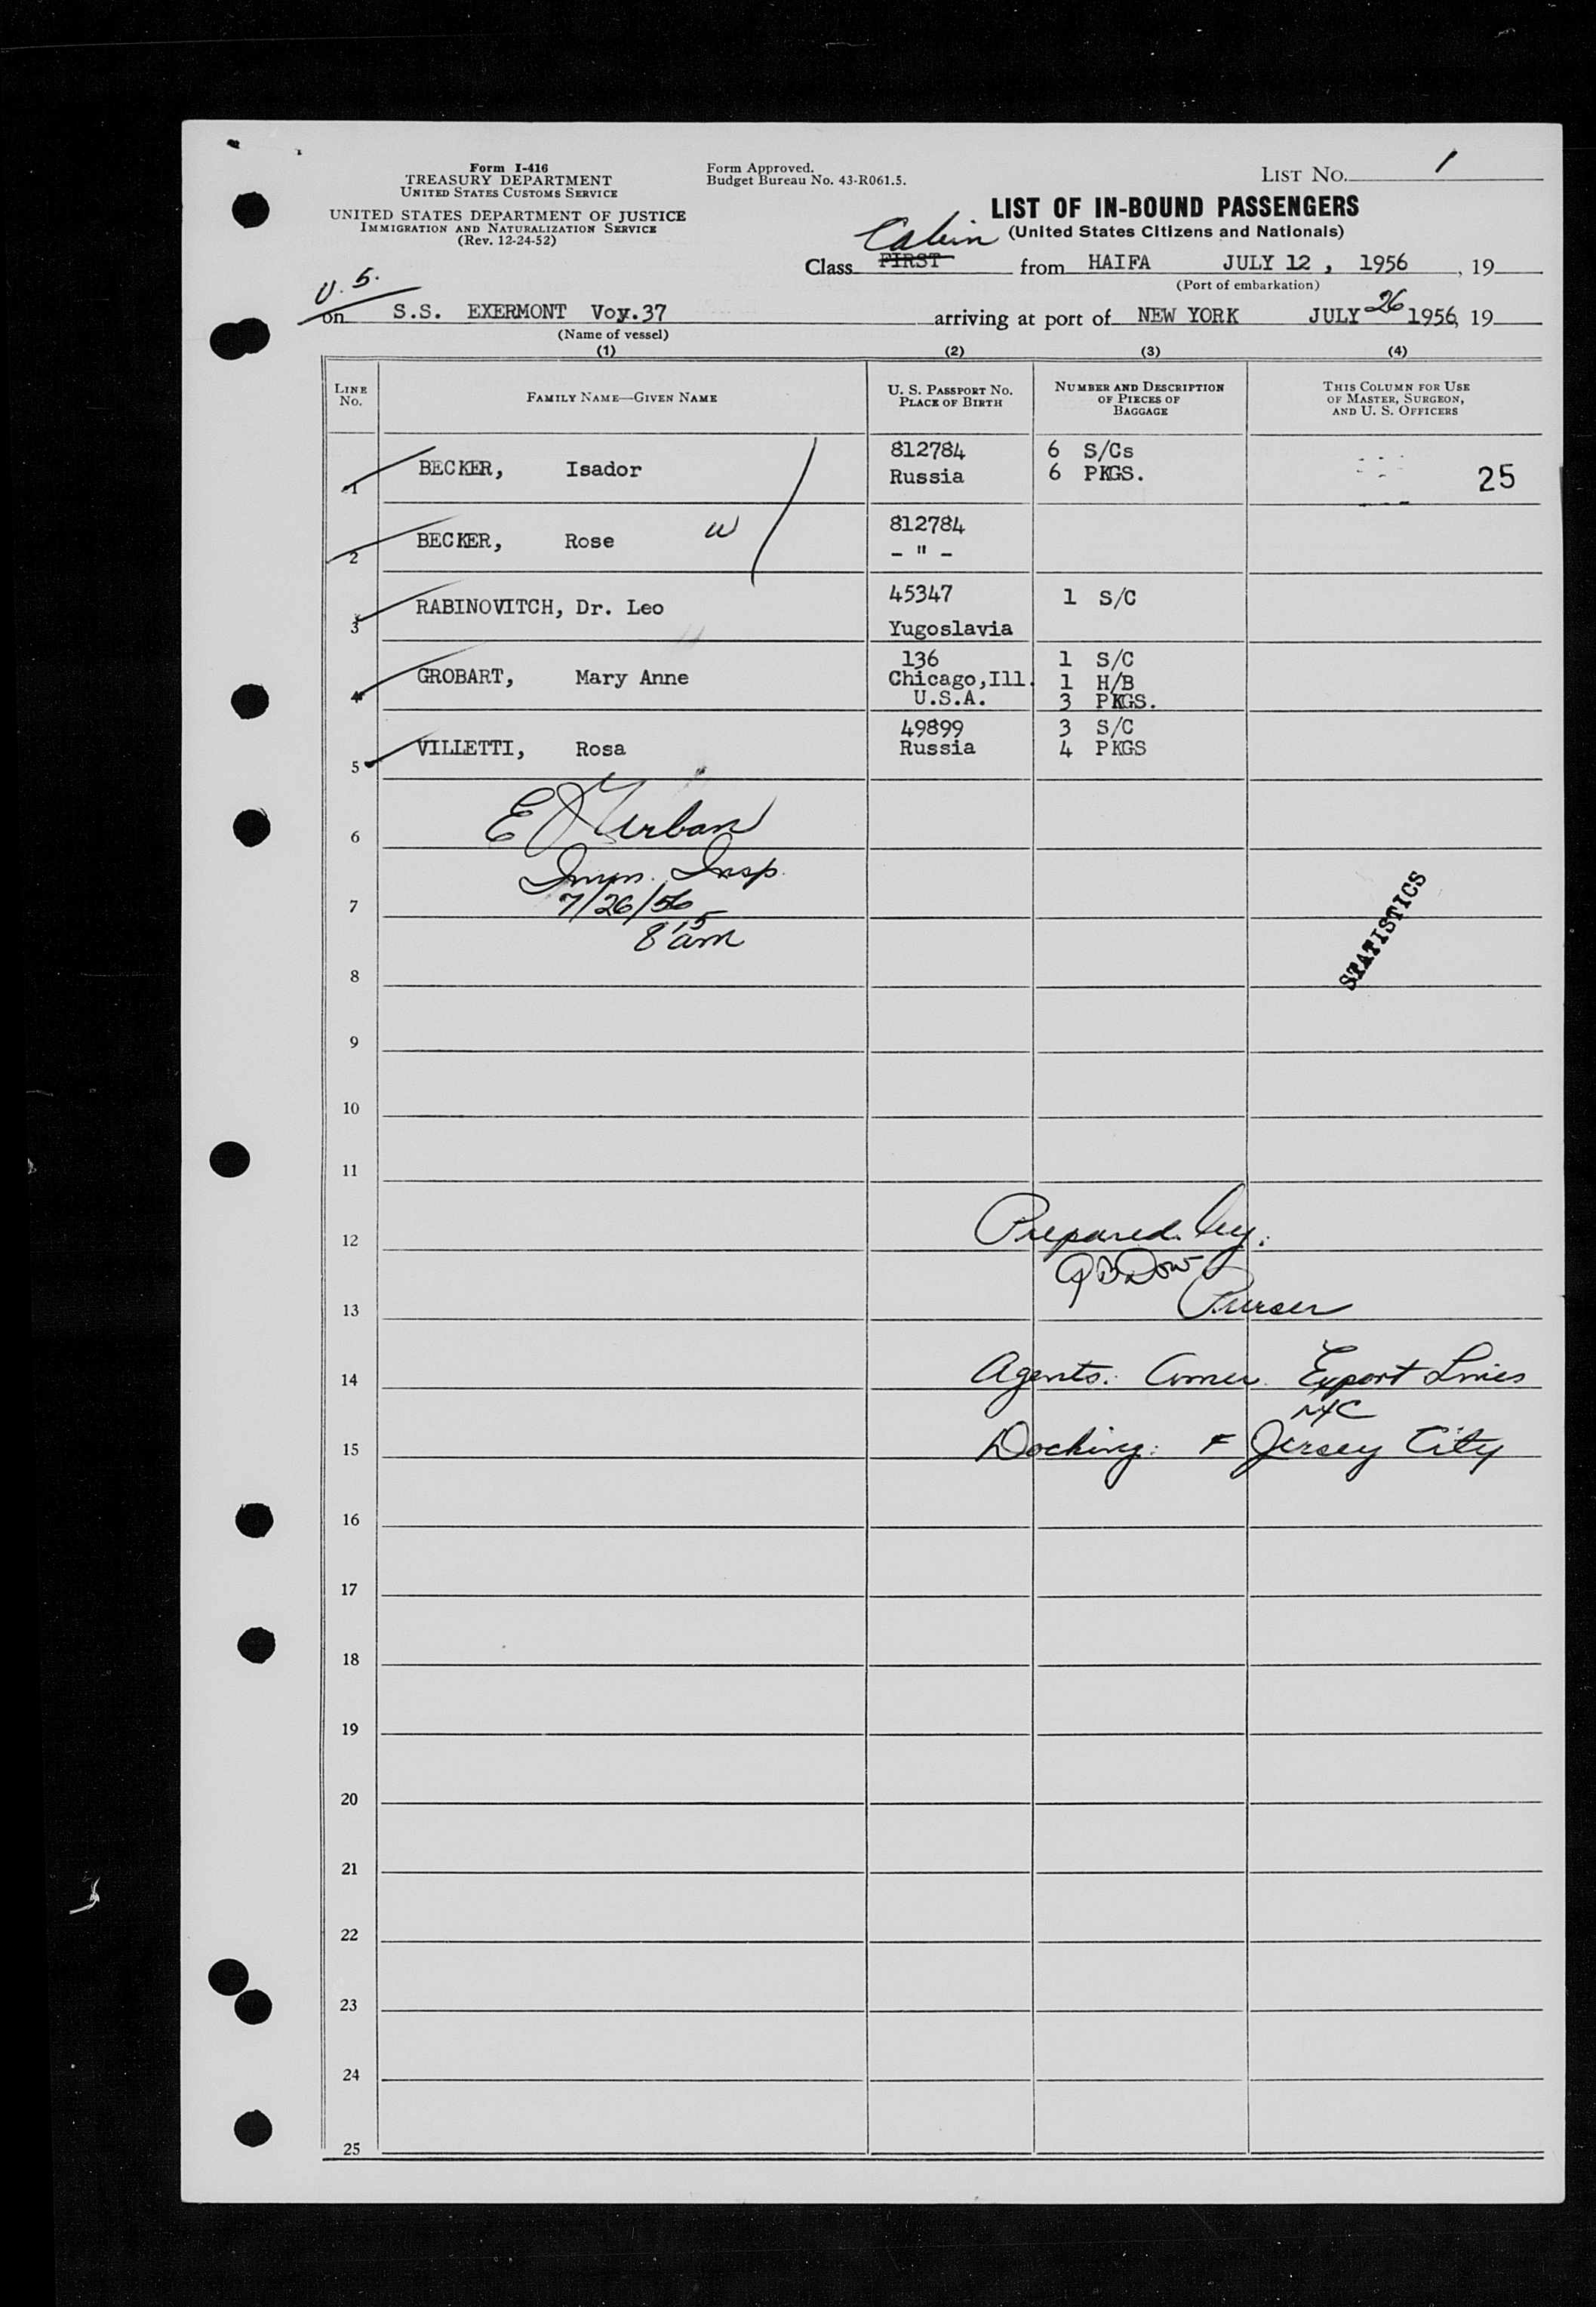 Form I-416
TREASURY DEPARTMENT
UNITED STATES CUSTOMS SERVICE
UNITED STATES DEPARTMENT OF JUSTICE
IMMIGRATION AND NATURALIZATION SERVICE
(Rev. 12-24-52)
Form Approved.
Budget Bureau No. 43-R061.5.
LIST NO. 1
LIST OF IN-BOUND PASSENGERS
(United States Citizens and Nationals)
Cabin
Class FIRST from HAIFA JULY 12, 1956, 19
(Port of embarkation)
U.S.
on S.S. EXERMONT Voy.37 arriving at port of NEW YORK JULY 26 1956, 19
(Name of vessel)
(1) (2) (3) (4)
LINE NO. FAMILY NAME—GIVEN NAME U. S. PASSPORT NO. PLACE OF BIRTH NUMBER AND DESCRIPTION OF PIECES OF BAGGAGE THIS COLUMN FOR USE OF MASTER, SURGEON, AND U. S. OFFICERS
812784 6 S/Cs
1 BECKER, Isador Russia 6 PKGS. 25
812784
2 BECKER, Rose W - " -
45347 1 S/C
3 RABINOVITCH, Dr. Leo
Yugoslavia
136 1 S/C
4 GROBART, Mary Anne Chicago,Ill. 1 H/B
U.S.A. 3 PKGS.
49899 3 S/C
5 VILLETTI, Rosa Russia 4 PKGS
6 E J Urban
Imm. Insp.
7 7/26/56
8 15 am
STATISTICS
8
9
10
11
12 Prepared by:
Dow
13 Purser
14 Agents: Amer. Export Lines
NYC
15 Docking: F Jersey City
16
17
18
19
20
21
22
23
24
25